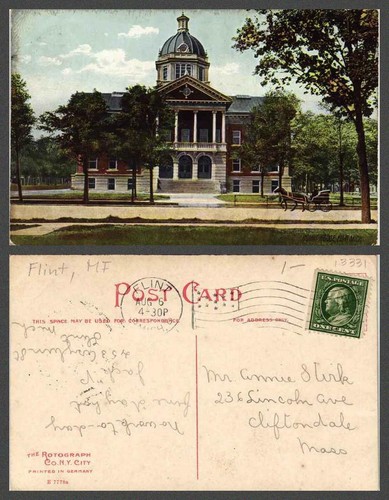 Flint, MI
1-
13331
POST CARD
FLINT
AUG 6
4-30P
THIS SPACE MAY BE USED FOR CORRESPONDENCE.
FOR ADDRESS ONLY.
U.S. POSTAGE
ONE CENT
Mr Annie Sterk
236 Lincoln Ave
Cliftondale
Mass
No work to-day
fine day hot
Flint Mich
THE ROTOGRAPH
CO. N.Y. CITY
PRINTED IN GERMANY